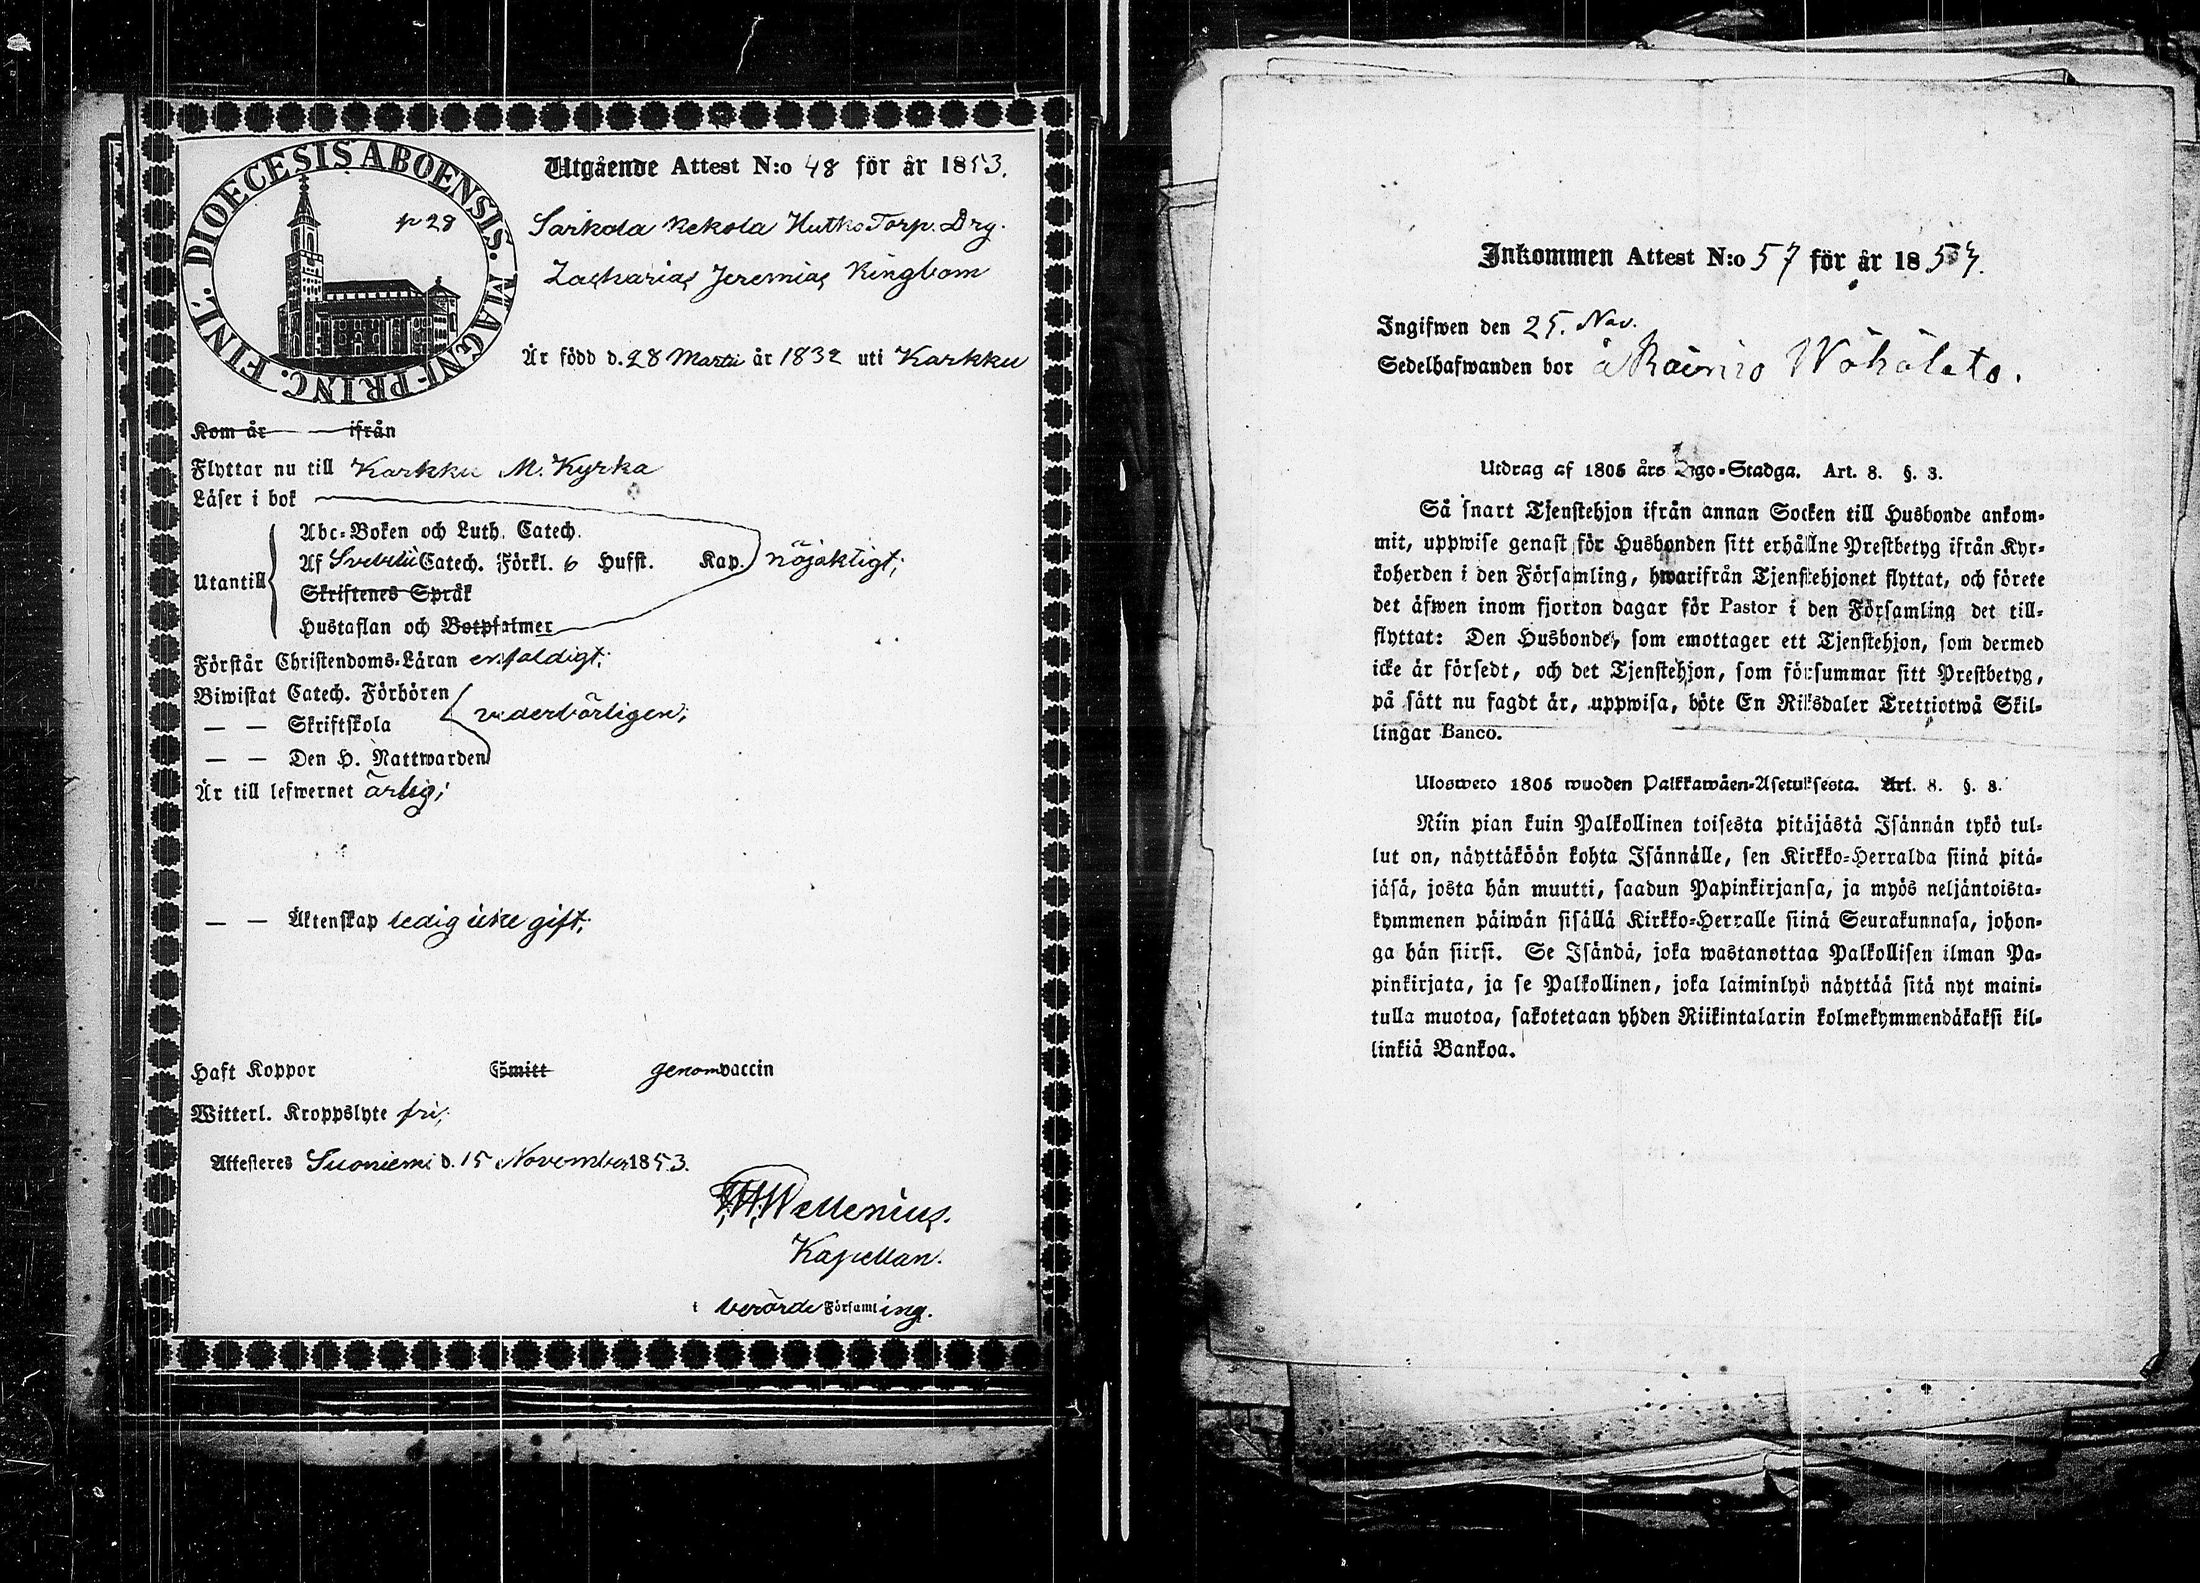 DIOECESIS ABOENSIS. MAGNI-PRINC. FINL.
p 28
Utgående Attest N:o 48 för år 1853.
Sarkola Kekola Hutko Torp. Drg.
Zacharias Jeremias Ringbom
Är född d. 28 Martii år 1832 uti Karkku
Kom år ifrån
Flyttar nu till Karkku M. Kyrka
Läser i bok
Utantill
Abc-Boken och Luth. Catech.
Af Svebelii Catech. Förkl. 6 Hufst. Kap. nöjaktigt;
Skriftenes Språk
Hustaflan och Botpsalmer
Förstår Christendoms-Läran enfaldigt;
Biwistat Catech. Förhören
— — Skriftskola vederbörligen;
— — Den H. Nattwarden
Är till lefwernet ärlig;
— — Äktenskap ledig icke gift;
Haft Koppor Smitt genom vaccin
Witterl. Kroppslyte fri;
Attesteres Suoniemi d. 15 November 1853.
Wellenius.
Kapellan.
i berörde Församling.
Inkommen Attest N:o 57 för år 185
Ingifwen den 25. Nov.
Sedelhafwanden bor å Rainio Wähälato.
Utdrag af 1805 års Lego-Stadga. Art. 8. §. 3.
Så snart Tjenstehjon ifrån annan Socken till Husbonde ankom-
mit, uppwise genast för Husbonden sitt erhållne Prestbetyg ifrån Kyr-
koherden i den Församling, hwarifrån Tjenstehjonet flyttat, och förete
det äfwen inom fjorton dagar för Pastor i den Församling det till-
flyttat: Den Husbonde, som emottager ett Tjenstehjon, som dermed
icke är försedt, och det Tjenstehjon, som försummar sitt Prestbetyg,
på sätt nu sagdt är, uppwisa, böte En Riksdaler Trettiotwå Skil-
lingar Banco.
Uloswето 1805 wuoden Palkkawäen-Asetuksesta. Art. 8. §. 3.
Niin pian kuin Palkollinen toisesta pitäjästä Isännän tykö tul-
lut on, näyttäköön kohta Isännälle, sen Kirkko-Herralda siinä pitä-
jäsä, josta hän muutti, saadun Papinkirjansa, ja myös neljäntoista-
kymmenen päiwän sisällä Kirkko-Herralle siinä Seurakunnasa, johon-
ga hän siirsi. Se Isändä, joka wastanottaa Palkollisen ilman Pa-
pinkirjata, ja se Palkollinen, joka laiminlyö näyttää sitä nyt maini-
tulla muotoa, sakotetaan yhden Riikintalarin kolmekymmendäkaksi kil-
linkiä Bankoa.